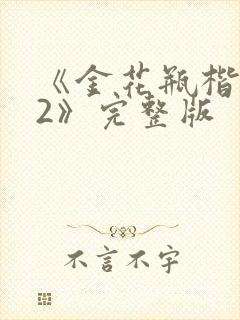 《金花瓶楷
2》完整版
不言不字